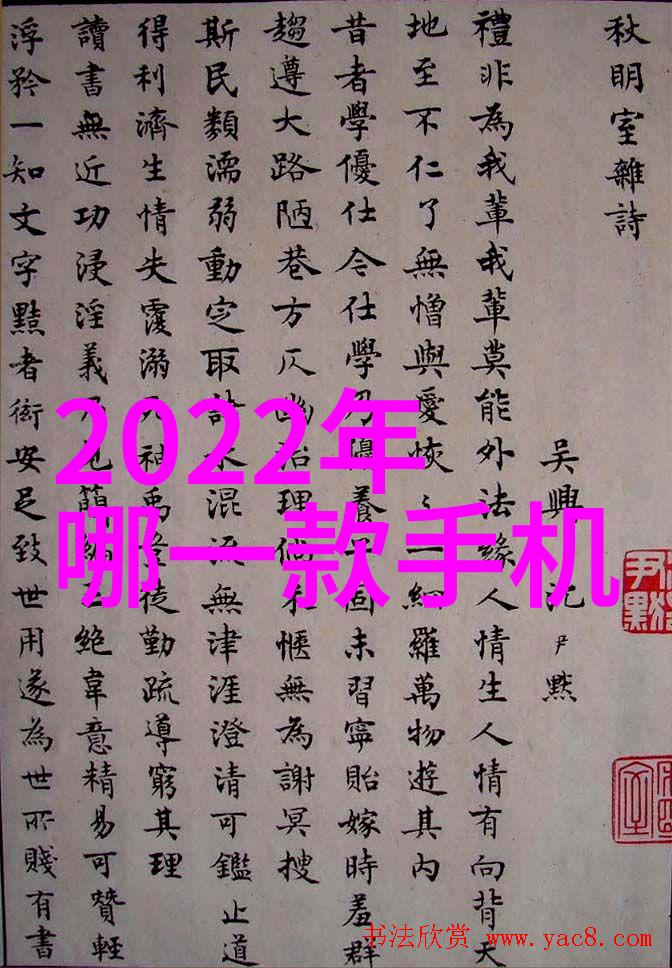 秋明室雜詩
吴興 沈尹默
禮非為我輩我輩莫能外法緣人情生人情有向背天
地至不仁了無憎與愛恢〻一網羅萬物遊其内
昔者學優仕今仕學乃優養子固未習寧貽嫁時羞群
趨遵大路陋巷方仄幽治理倘未愜無為謝冥搜
斯民類濡弱動定取 水混流無津涯澄清可鑑止道
得利濟生情失覆溺 神禹 徒勤疏導窮其理
讀書無近功浸淫義乃 簡編 絶韋意精易可贊輕
浮矜一知文字黠者衒安足致世用遂為世所賤有書
2022年
哪一款手机
尹默
书法欣赏 www.yac8.com